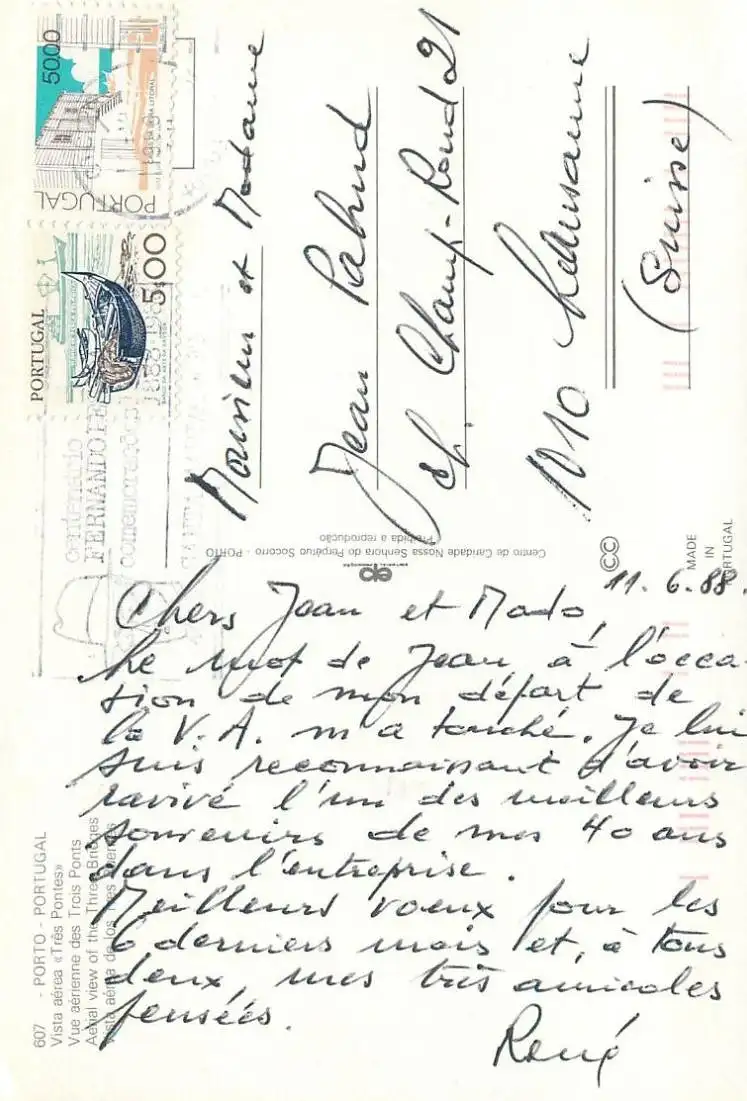 50.00
CASAS DA BEIRA LITORAL
PORTUGAL
PORTUGAL
5.00
Centenário
FERNANDO PE
Comemorações
1888-19
Monsieur et Madame
Jean Pahud
ch. Champ-Rond 21
1010 Lausanne
(Suisse)
Centro de Caridade Nossa Senhora do Perpétuo Socorro - PORTO
Proibida a reprodução
CC
MADE
IN
PORTUGAL
11. 6. 88.
Chers Jean et Mado,
Le mot de Jean, à l'occa-
sion de mon départ de
la V.A. m'a touché. Je lui
suis reconnaissant d'avoir
ravivé l'un des meilleurs
souvenirs de mes 40 ans
dans l'entreprise.
Meilleurs voeux pour les
6 derniers mois et, à tous
deux, mes très amicales
pensées.
René
607 - PORTO - PORTUGAL
Vista aérea «Três Pontes»
Vue aérienne des Trois Ponts
Aerial view of the Three Bridges
Vista aérea de los Tres Puentes